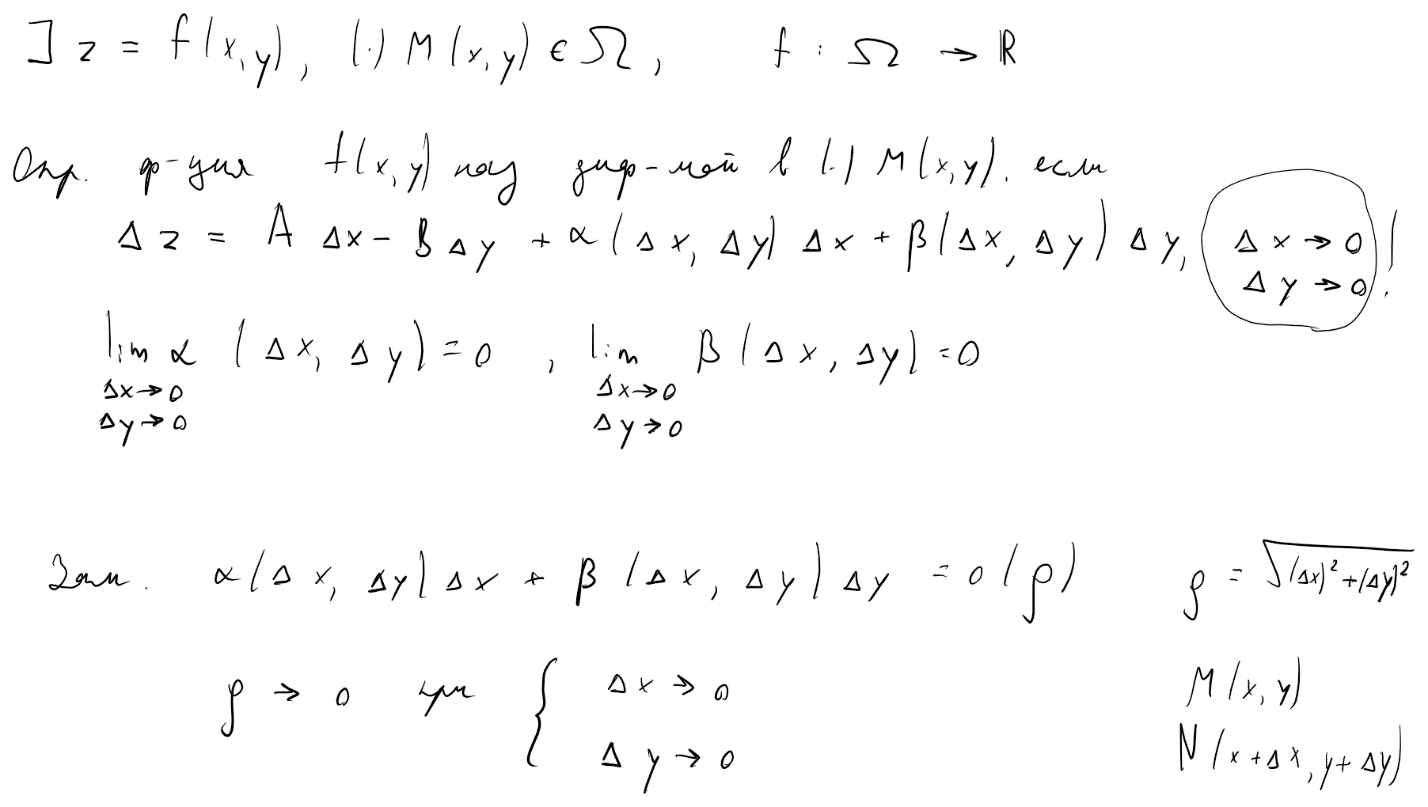 ] z = f(x, y), (·) M(x, y) ∈ Ω, f : Ω → ℝ
Опр. ф-ция f(x, y) наз диф-мой в (·) M(x, y). если
Δz = A Δx - B Δy + α(Δx, Δy) Δx + β(Δx, Δy) Δy, Δx → 0 !
Δy → 0
lim α (Δx, Δy) = 0 , lim β (Δx, Δy) = 0
Δx→0 Δx→0
Δy→0 Δy→0
Зам. α(Δx, Δy) Δx + β (Δx, Δy) Δy = o(ρ) ρ = √(Δx)² + (Δy)²
ρ → 0 при { Δx → 0 M(x, y)
Δy → 0 N(x + Δx, y + Δy)